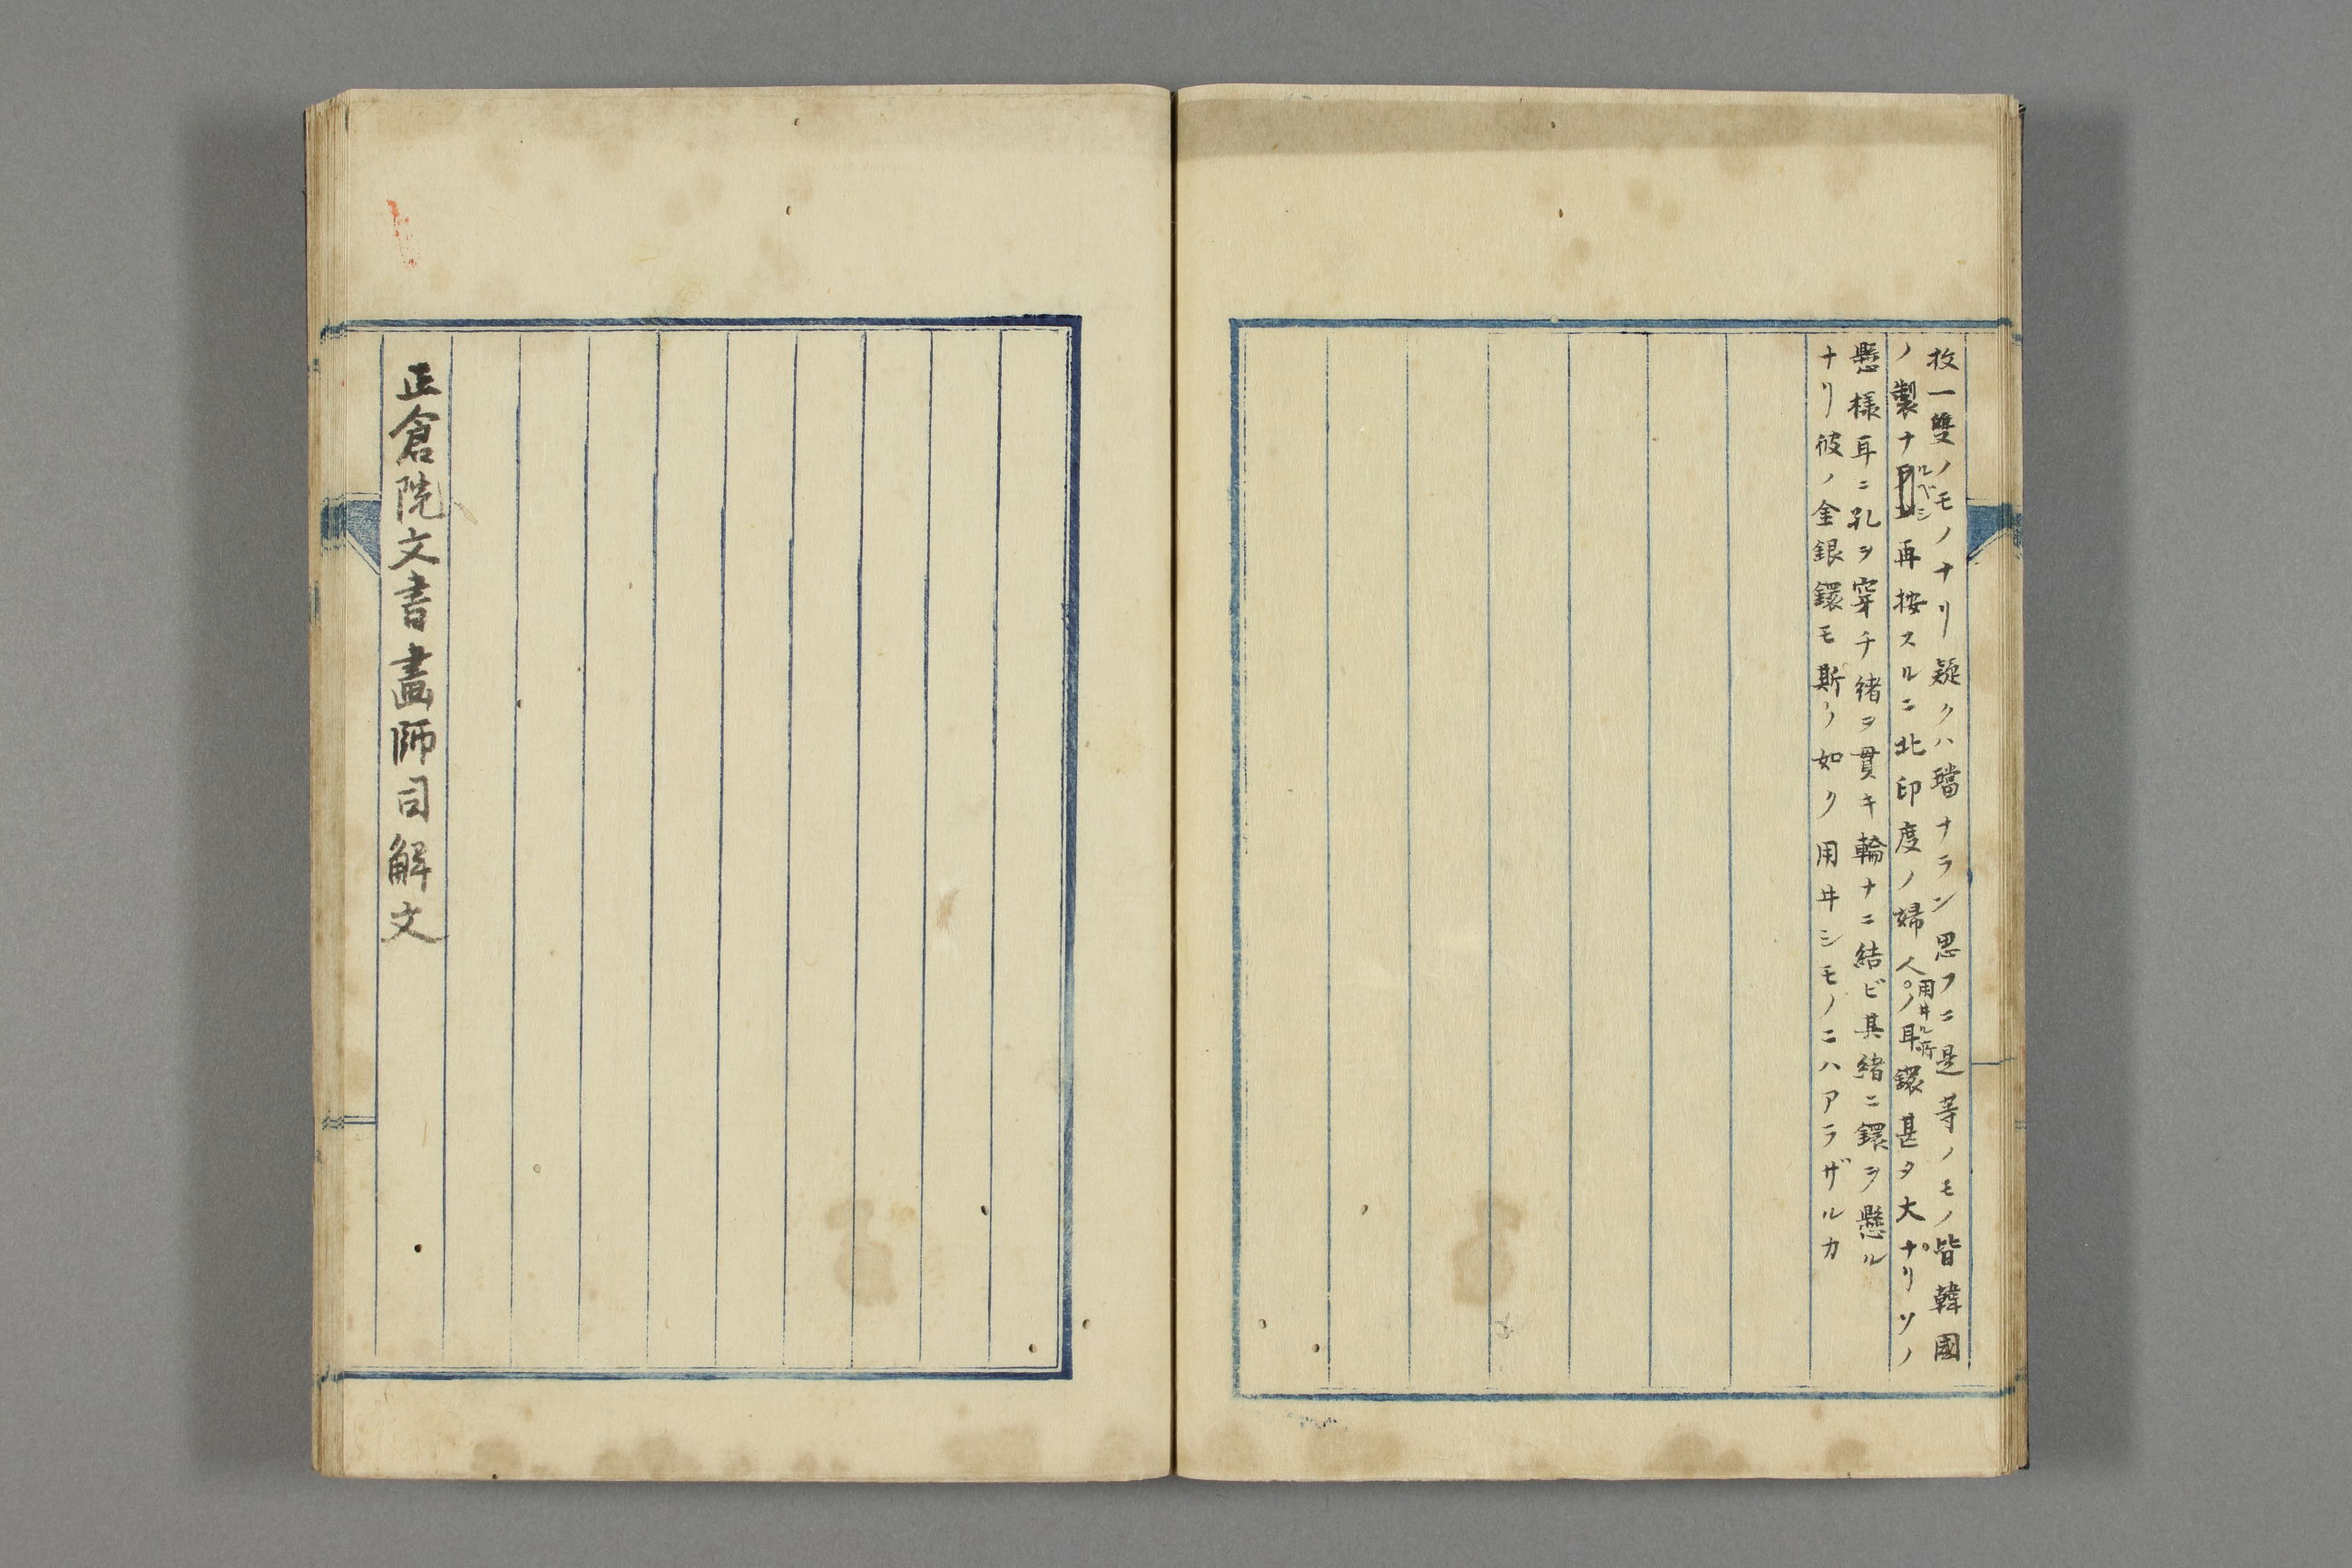 枚一雙ノモノナリ疑クハ璫ナラン思フニ是等ノモノ皆韓國
ノ製ナルベシ再按スルニ北印度ノ婦人ノ用ヰル所耳鐶甚タ大ナリソノ
懸様耳ニ孔ヲ穿チ緒ヲ貫キ輪ナニ結ビ其緒ニ鐶ヲ懸ル
ナリ彼ノ金銀鐶モ斯ノ如ク用ヰシモノニハアラザルカ
正倉院文書畫師司解文